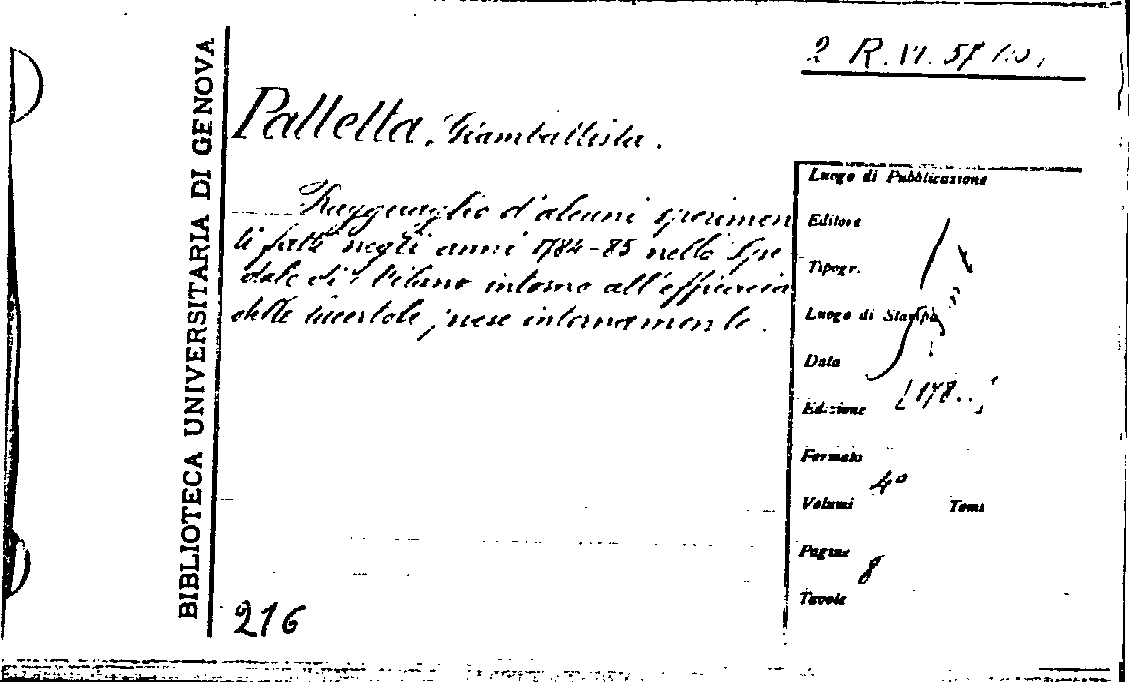 BIBLIOTECA UNIVERSITARIA DI GENOVA
2 R.VI. 57
Palletta, Giambattista.
Ragguaglio d'alcuni sperimen
ti fatti negli anni 1784-85 nello Spe
dale di Milano intorno all'efficacia
delle lucertole prese internamente.
Luogo di Pubblicazione
Editore
Tipogr.
Luogo di Stampa
Data
Edizione [178..]
Formato
4°
Volumi Tomi
Pagine
8
Tavole
216